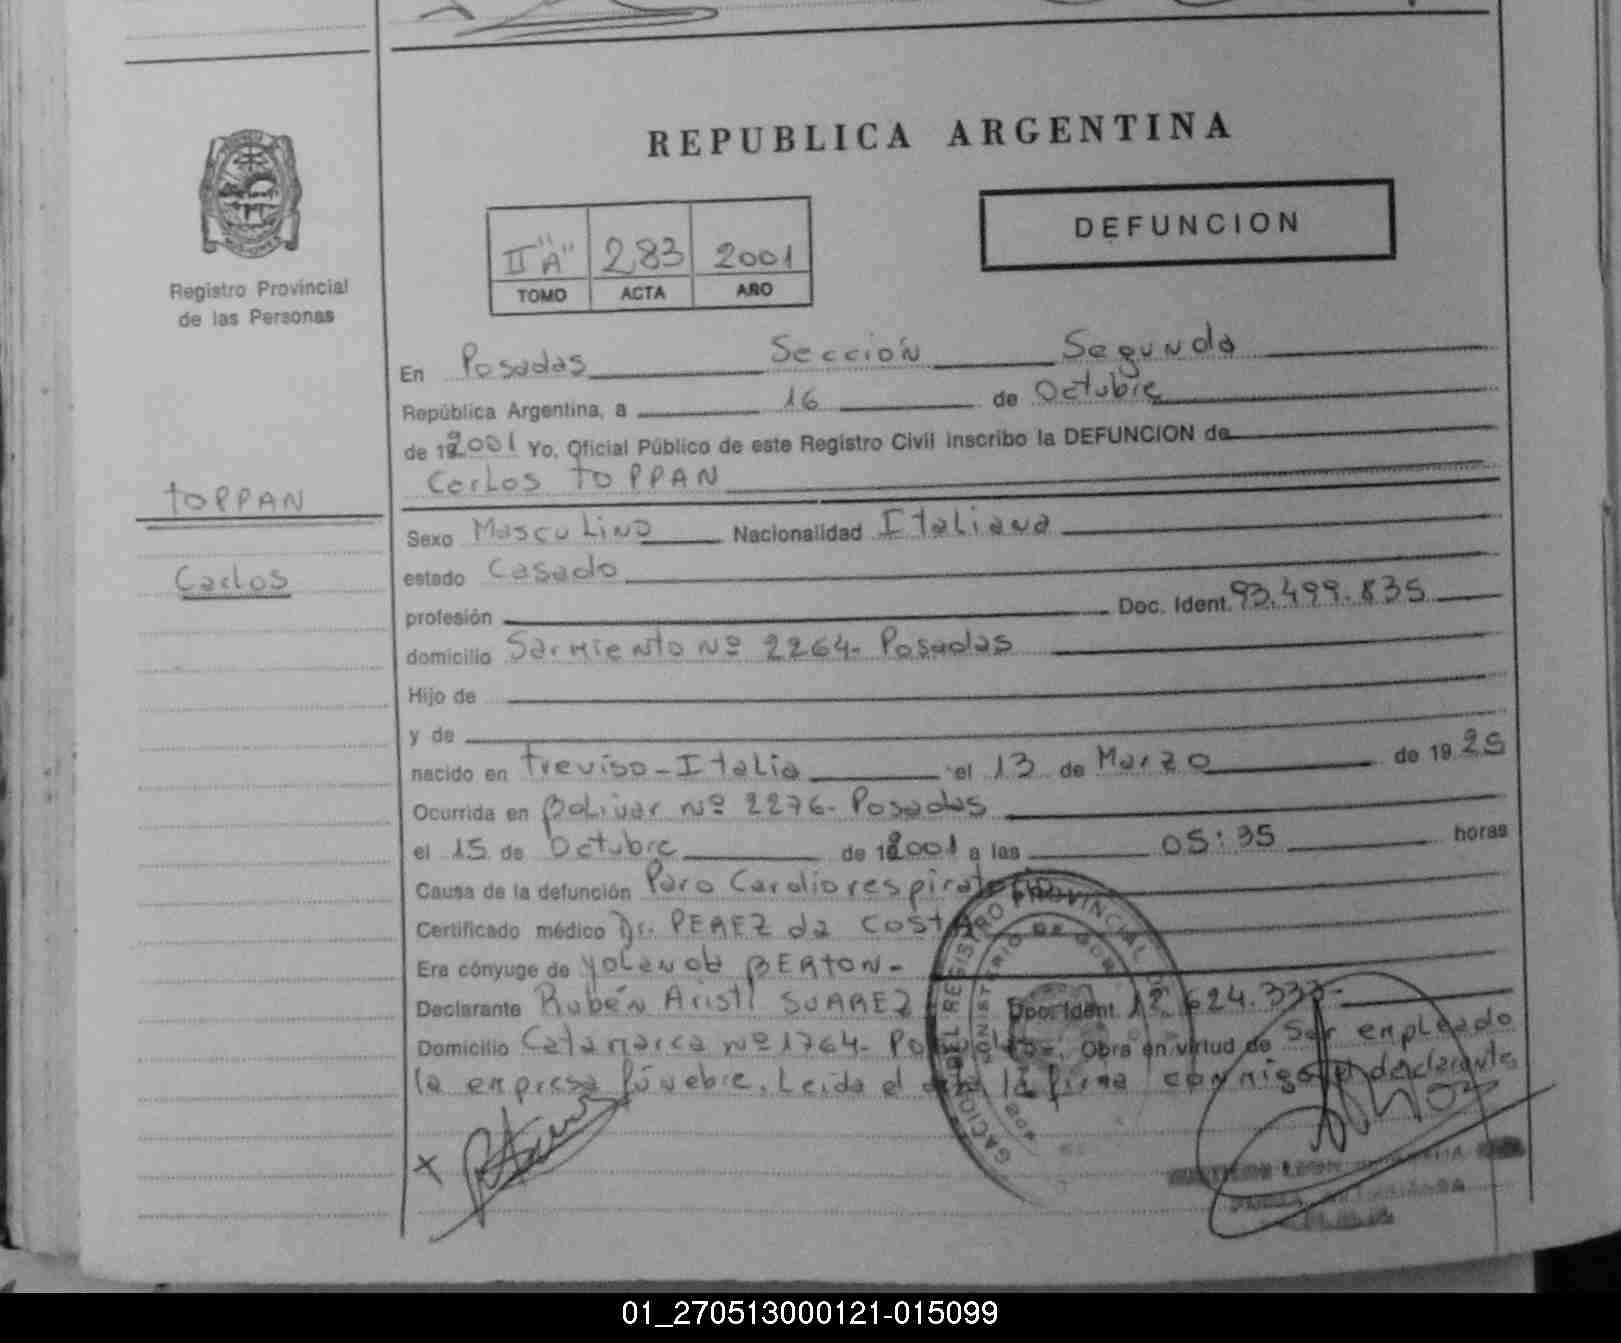 REPUBLICA ARGENTINA
DEFUNCION
II "A" 283 2001
TOMO ACTA AÑO
Registro Provincial
de las Personas
TOPPAN
Carlos
En Posadas Sección Segunda
República Argentina, a 16 de Octubre
de 2001 Yo, Oficial Público de este Registro Civil inscribo la DEFUNCION de
Carlos TOPPAN
Sexo Masculino Nacionalidad Italiana
estado Casado
profesión Doc. Ident. 93.499.835
domicilio Sarmiento Nº 2264- Posadas
Hijo de
y de
nacido en Treviso-Italia el 13 de Marzo de 19 25
Ocurrida en Bolivar Nº 2276- Posadas
el 15 de Octubre de 2001 a las 05:35 horas
Causa de la defunción Paro Cardiorespiratorio
Certificado médico Dr. PEREZ da COSTA
Era cónyuge de Yolanda BERTON-
Declarante Rubén Aristi SUAREZ Doc. Ident. 12.624.333-
Domicilio Catamarca Nº 1764- Posadas-. Obra en virtud de Ser empleado
la empresa fúnebre. Leida el acta la firma conmigo el declarante
REGISTRO PROVINCIAL
MINISTERIO DE GOB
01_270513000121-015099